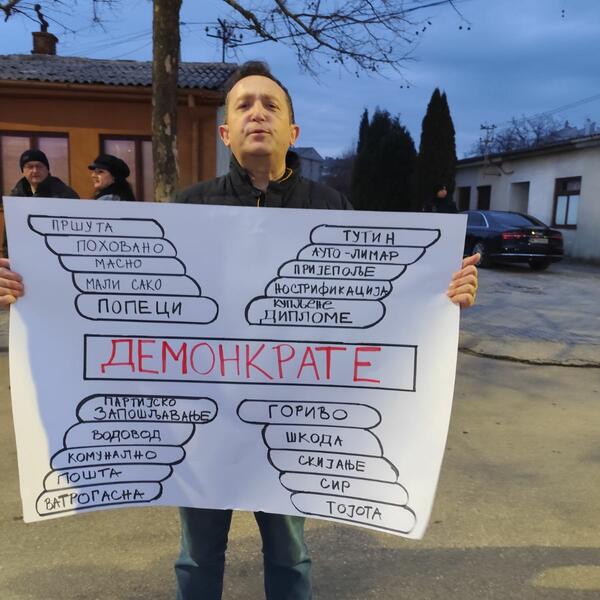 ПРШУТА
ПОХОВАНО
МАСНО
МАЛИ САКО
ПОПЕЦИ
ТУТИН
АУТО-ЛИМАР
ПРИЈЕПОЉЕ
НОСТРИФИКАЦИЈА
КУПЉЕНЕ
ДИПЛОМЕ
ДЕМОНКРАТЕ
ПАРТИЈСКО
ЗАПОШЉАВАЊЕ
ВОДОВОД
КОМУНАЛНО
ПОШТА
ВАТРОГАСНА
ГОРИВО
ШКОДА
СКИЈАЊЕ
СИР
ТОЈОТА